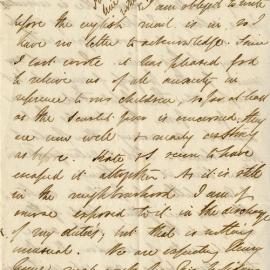 I am obliged to write
before the english mail is in so I
have no letter to acknowledge. Since
I last wrote it has pleased God
to relieve us of all anxiety in
reference to our children, so far at least
as the Scarlet fever is concerned, they
are now well & nearly as strong
as before. Kate & I seem to have
escaped it altogether. As it is still
in the neighbourhood I am of
course exposed to it in the discharge
of my duties, but that is nothing
unusual. We are expecting Henry